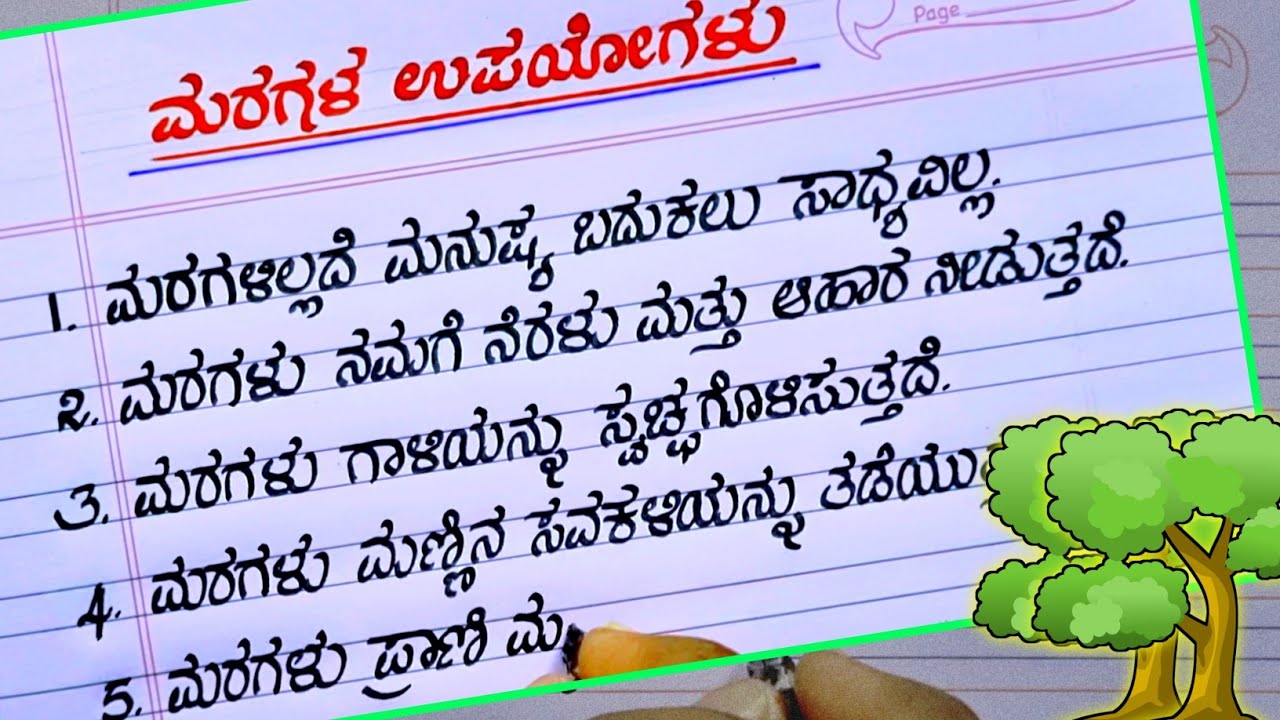 Page
ಮರಗಳ ಉಪಯೋಗಳು
1. ಮರಗಳಿಲ್ಲದೆ ಮನುಷ್ಯ ಬದುಕಲು ಸಾಧ್ಯವಿಲ್ಲ.
2. ಮರಗಳು ನಮಗೆ ನೆರಳು ಮತ್ತು ಆಹಾರ ನೀಡುತ್ತದೆ.
3. ಮರಗಳು ಗಾಳಿಯನ್ನು ಸ್ವಚ್ಛಗೊಳಿಸುತ್ತದೆ.
4. ಮರಗಳು ಮಣ್ಣಿನ ಸವಕಳಿಯನ್ನು
5. ಮರಗಳು ಪ್ರಾಣಿ